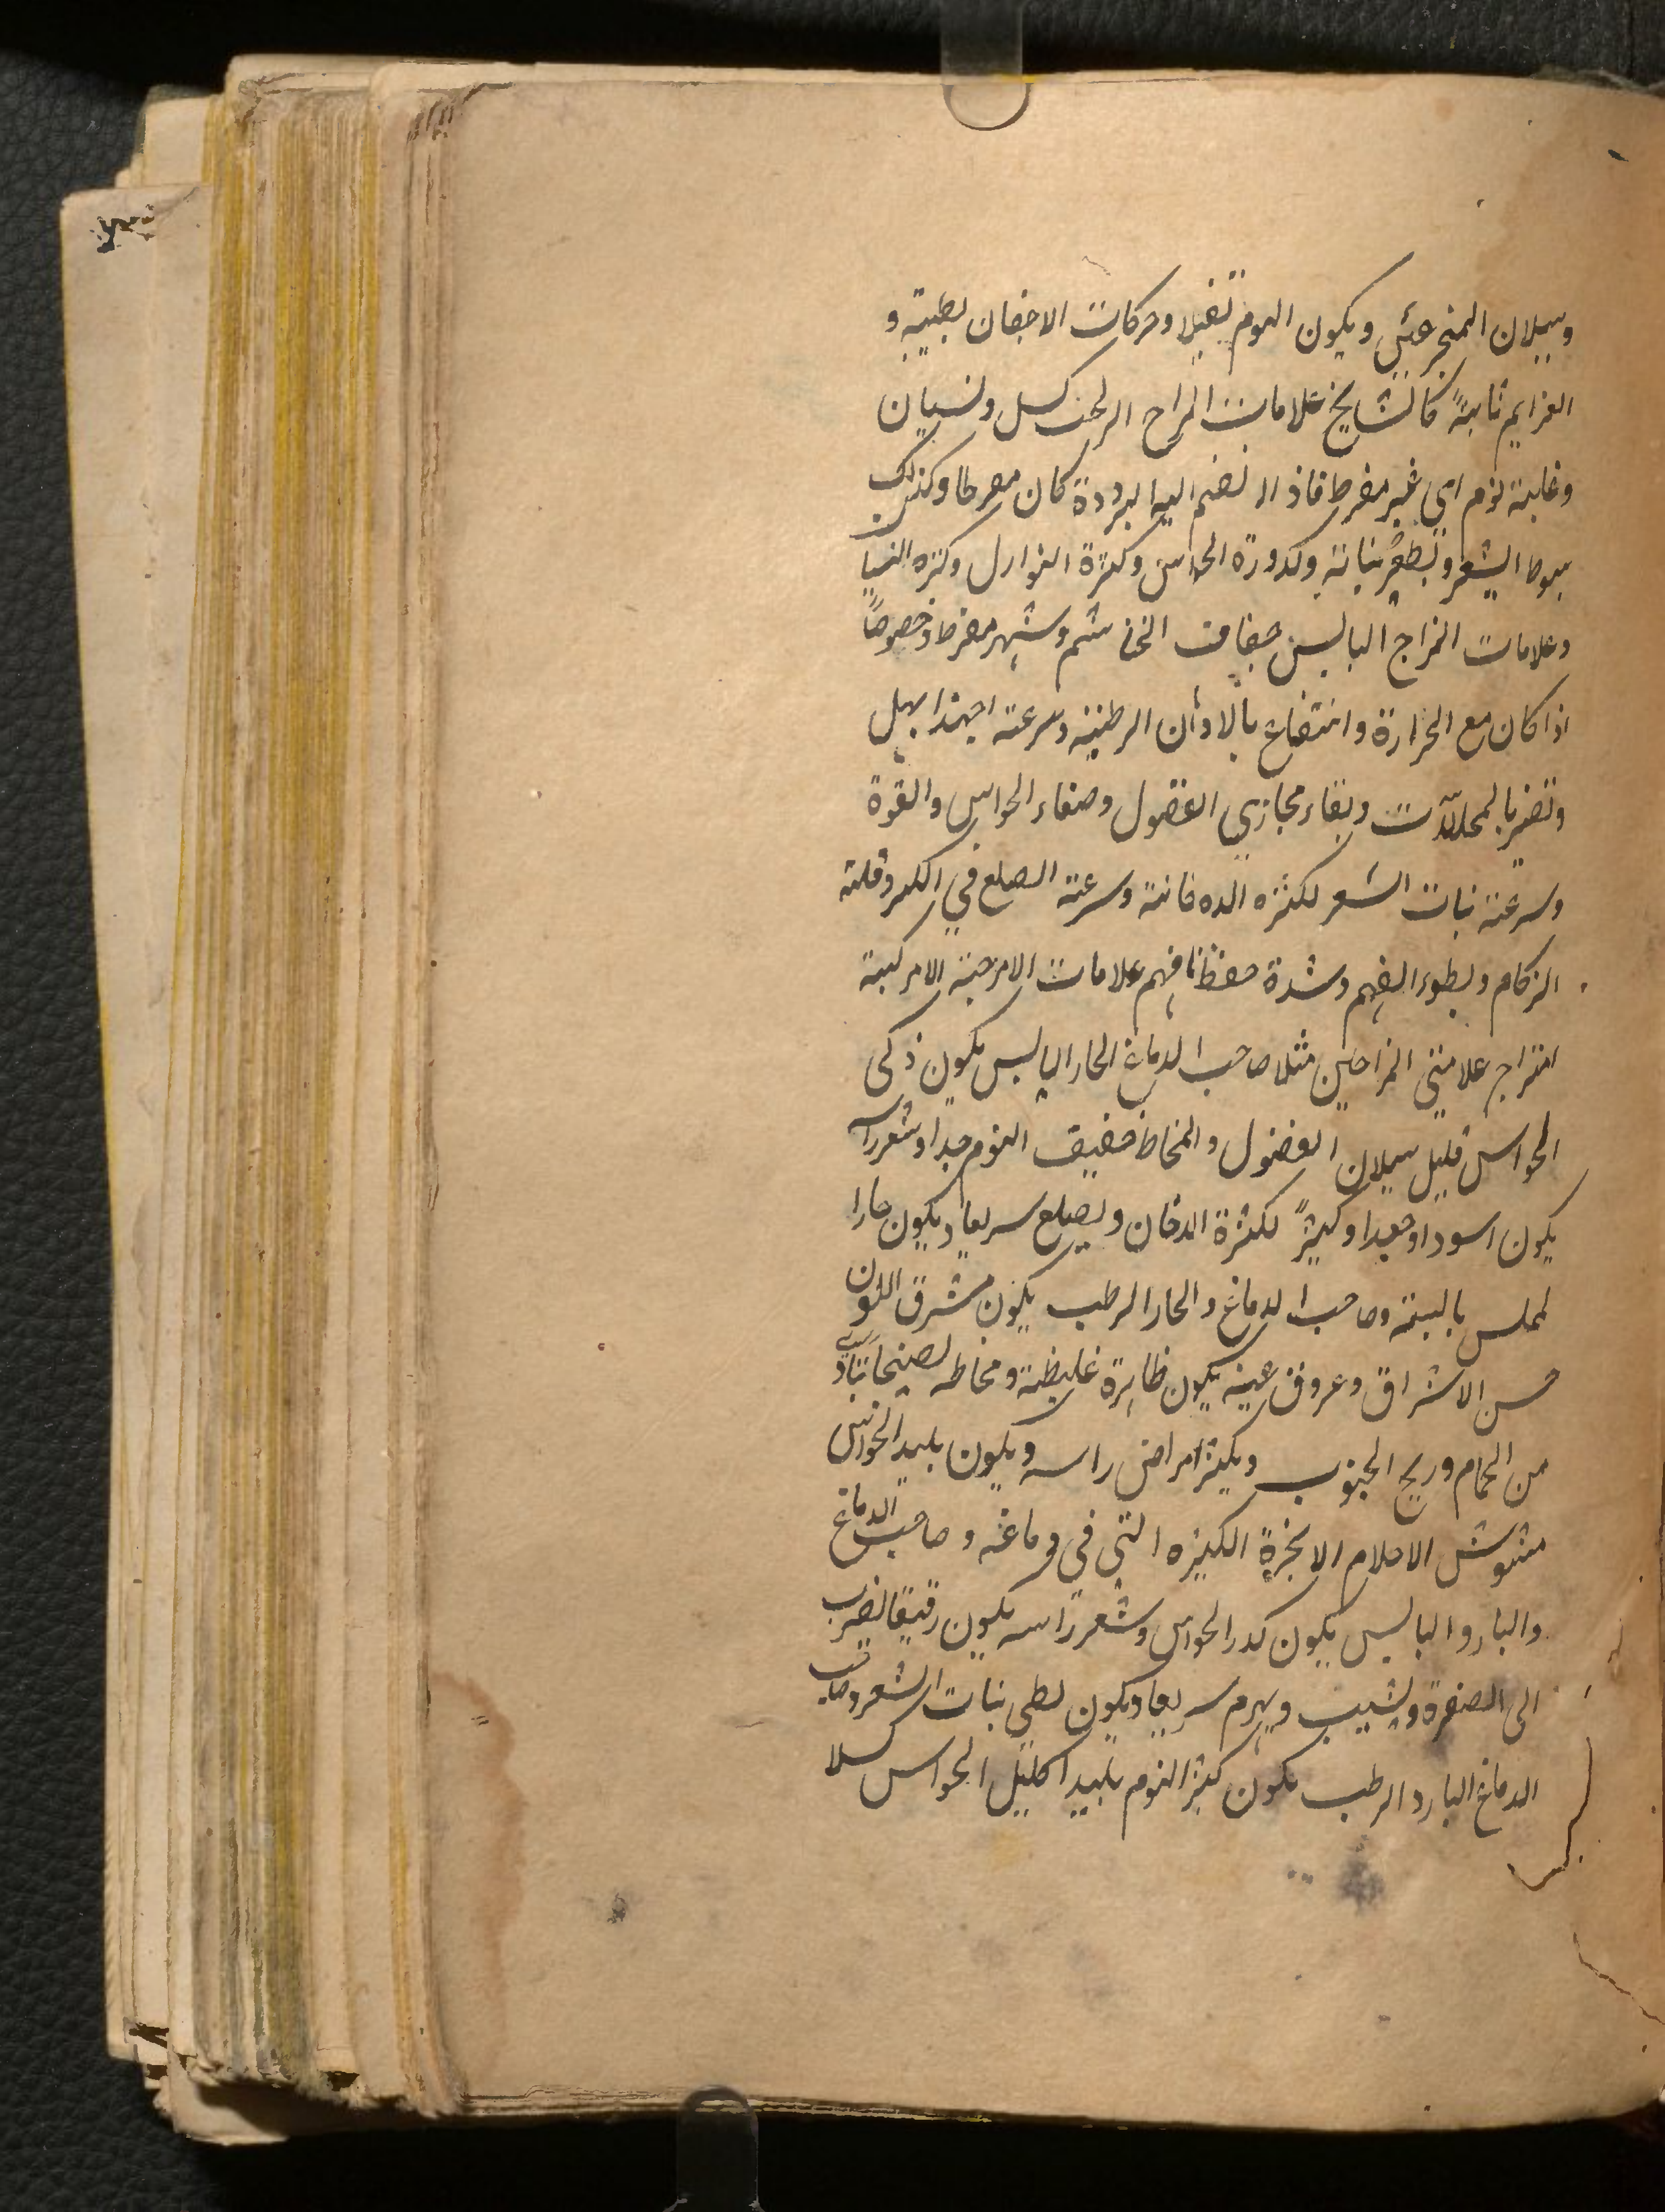 وسيلان المنخرعيني ويكون النوم ثقيلا وحركات الاجفان بطيئة و
العزايم ثابتة كالمشايخ علامات المزاج الرطب كسل ونسيان
وغلبة نوم اي غير مفرط فاذا انضم اليه البرودة كان مفرطا وكذلك
سبوط الشعر وبطؤ نباته وكدورة الحواس وكثرة النوازل وكثره النسيا
وعلامات المزاج اليابس جفاف الخاشم وسهر مفرط وخصوصاً
اذا كان مع الحرارة وانتفاع بالادهان الرطبة وسرعة اجتذابها
وتضر بالمحللات ونقاء مجاري الفضول وصفاء الحواس والقوة
وسرعة نبات الشعر لكثره الدخانة وسرعة الصلع في الكبر وقلة
الزكام وبطوء الفهم وشدة حفظ ما فهم علامات الامزجة المركبة
امتزاج علامتي المزاجين مثلا صاحب الدماغ الحار اليابس يكون ذكى
الحواس قليل سيلان الفضول والمخاط خفيف النوم جدا وشعر راسه
يكون اسود او جعدا وكثيراً لكثرة الدخان ويصلع سريعا ويكون حارا
لملمس باليبة وصاحب الدماغ والحار الرطب يكون مشرق اللون
حسن الاشراق وعروق عينه يكون ظاهرة غليظة ومخاطه نضيجا يتاذى
من الحمام وريح الجنوب ويكثر امراض راسه ويكون بليد الحواس
مشوش الاحلام الابخرة الكثيره التي في دماغه وصاحب الدماغ
والبارو اليابس يكون كدر الحواس وشعر راسه يكون رقيقا يضرب
الى الصفرة ويشيب ويهرم سريعا ويكون بطي نبات الشعر وصاحب
الدماغ البارد الرطب يكون كثير النوم بليدا كليل الحواس كسلا